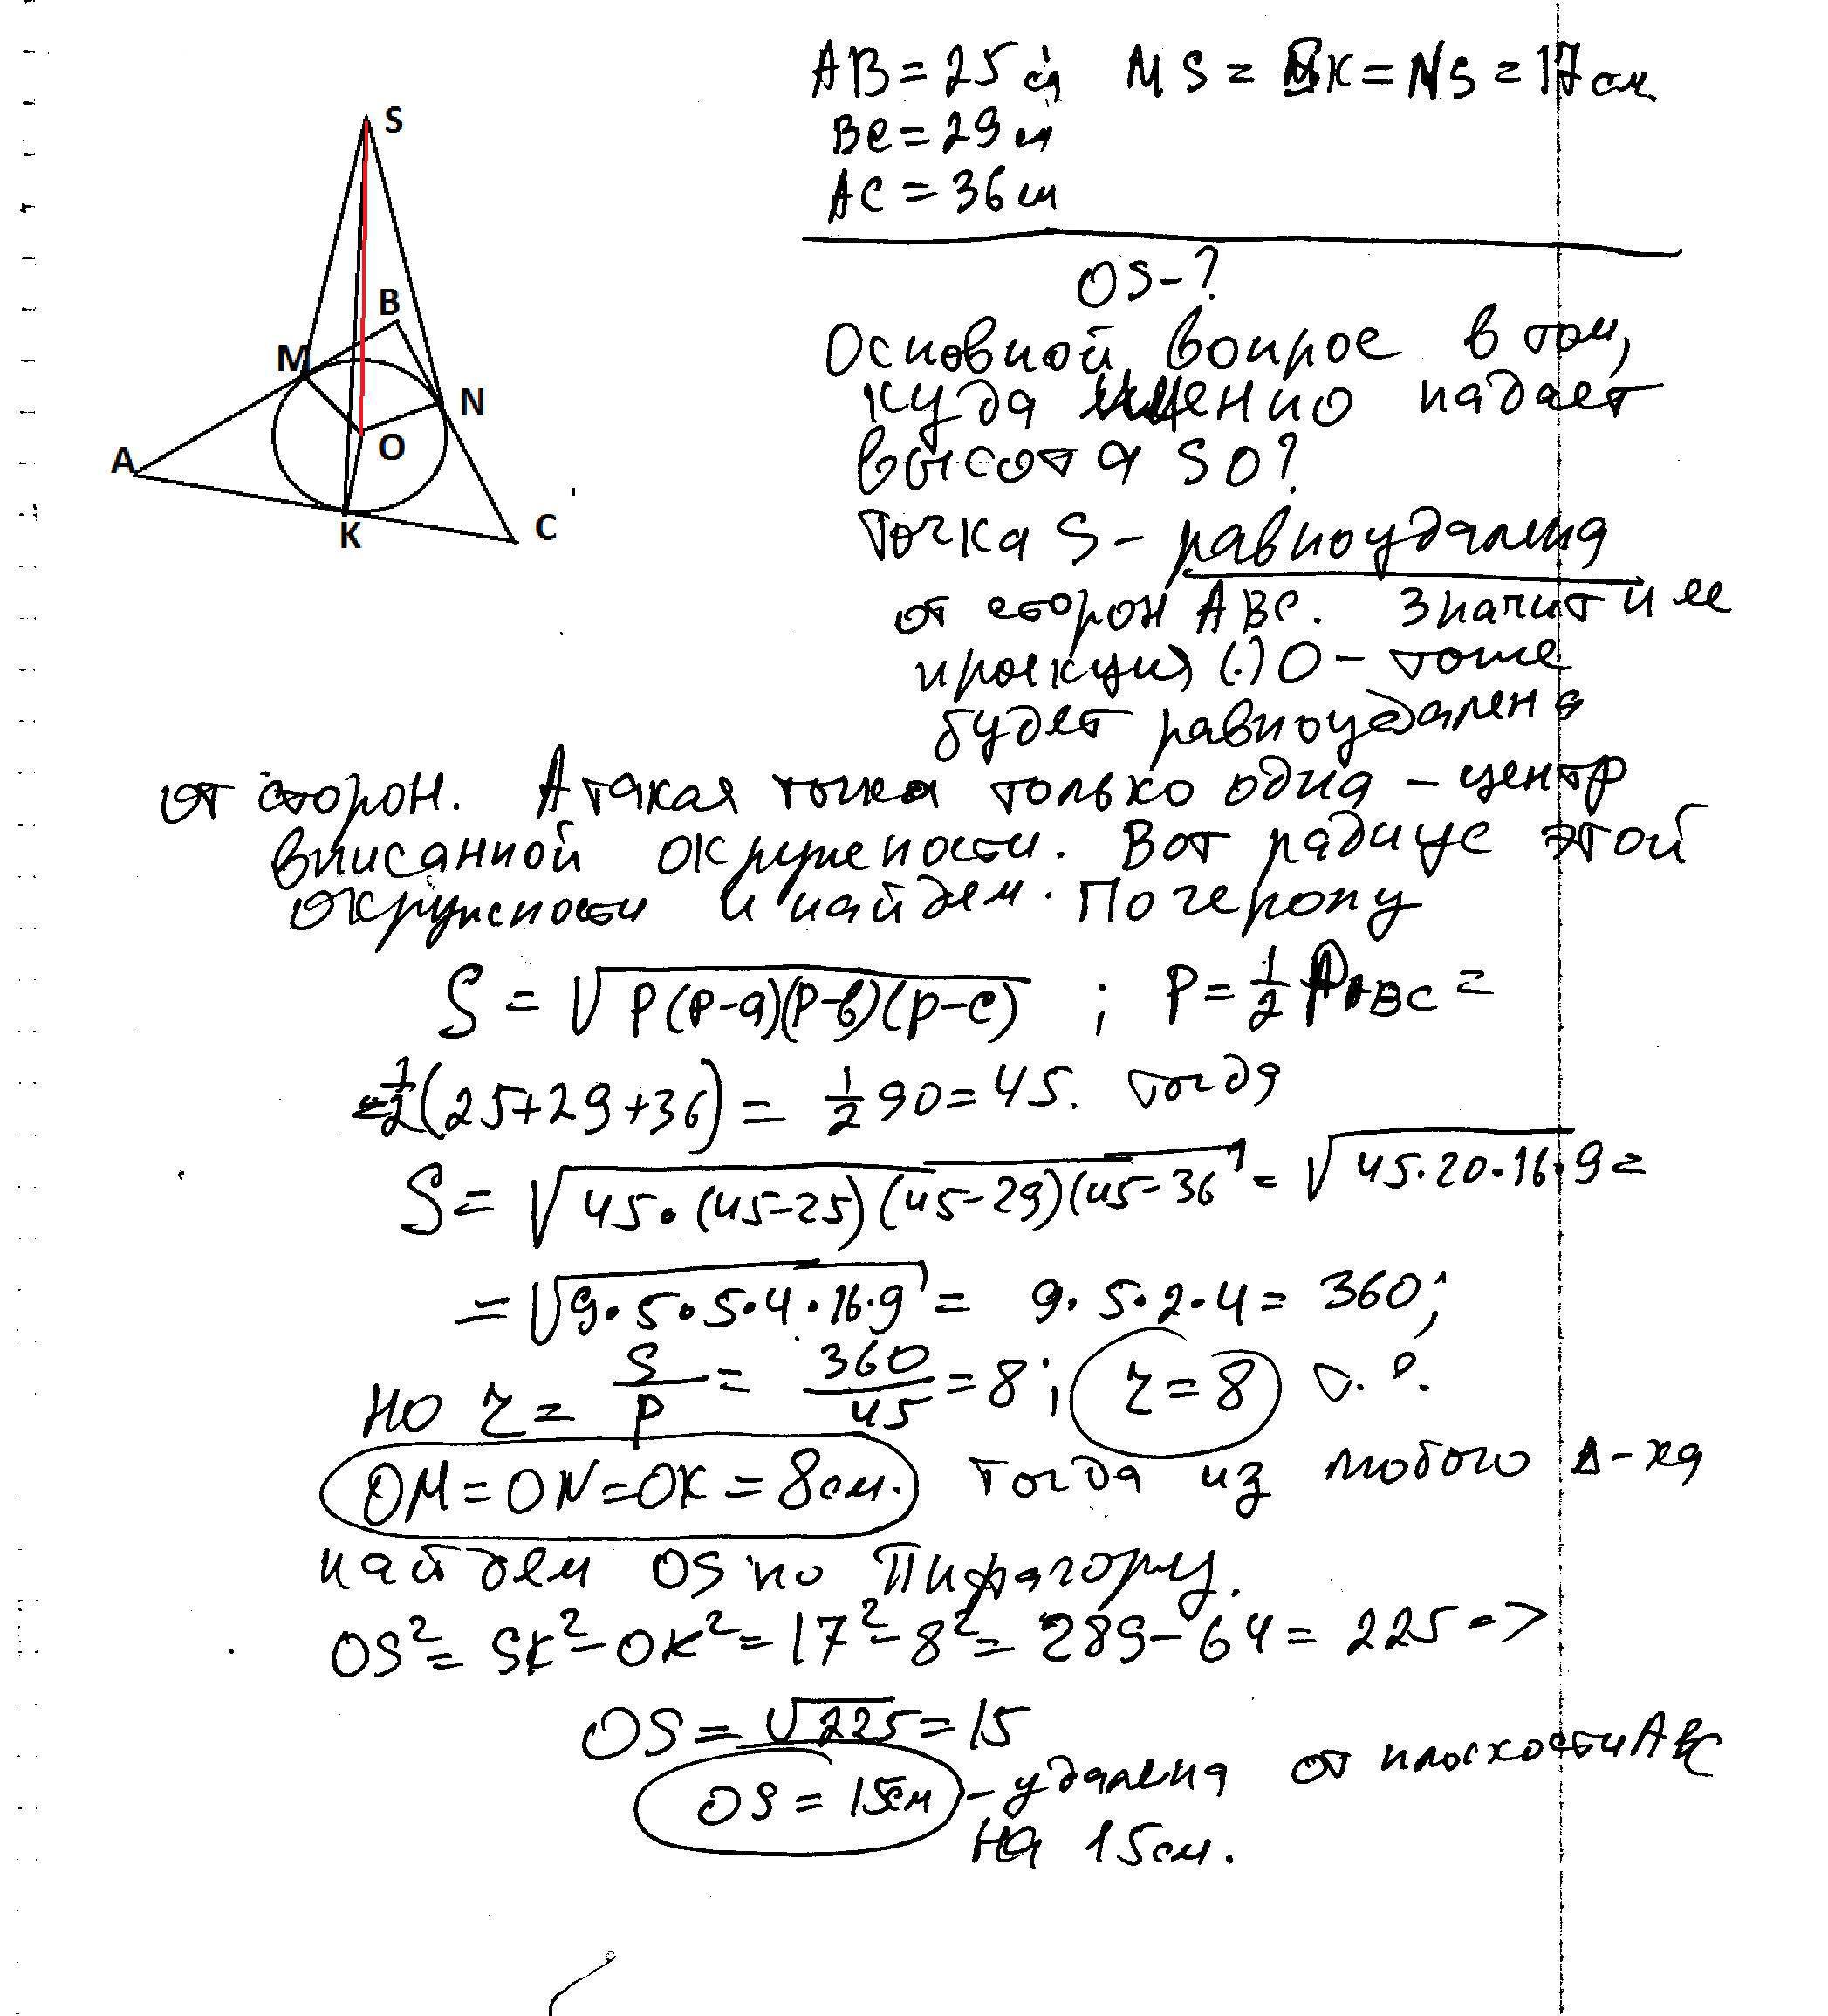 S
B
M
N
O
A
K
C
AB = 25 см MS = SK = NS = 17 см
BC = 29 см
AC = 36 см
OS - ?
Основной вопрос в том,
куда именно падает
высота SO?
Точка S - равноудалена
от сторон ABC. Значит и ее
проекция (.) O - тоже
будет равноудалена
от сторон. А такая точка только одна - центр
вписанной окружности. Вот радиус этой
окружности и найдем. По герону
S = √p(p-a)(p-b)(p-c) ; p = 1/2 P ABC =
= 1/2 (25+29+36) = 1/2 90 = 45. тогда
S = √45·(45-25)(45-29)(45-36 = √45·20·16·9 =
= √9·5·5·4·16·9 = 9·5·2·4 = 360;
но r = S/p = 360/45 = 8; r = 8 т. е.
OM = ON = OK = 8 см. Тогда из любого Δ-ка
найдем OS по Пифагору.
OS² = SK² - OK² = 17² - 8² = 289 - 64 = 225 =>
OS = √225 = 15
OS = 15 см - удалена от плоскости ABC
на 15 см.